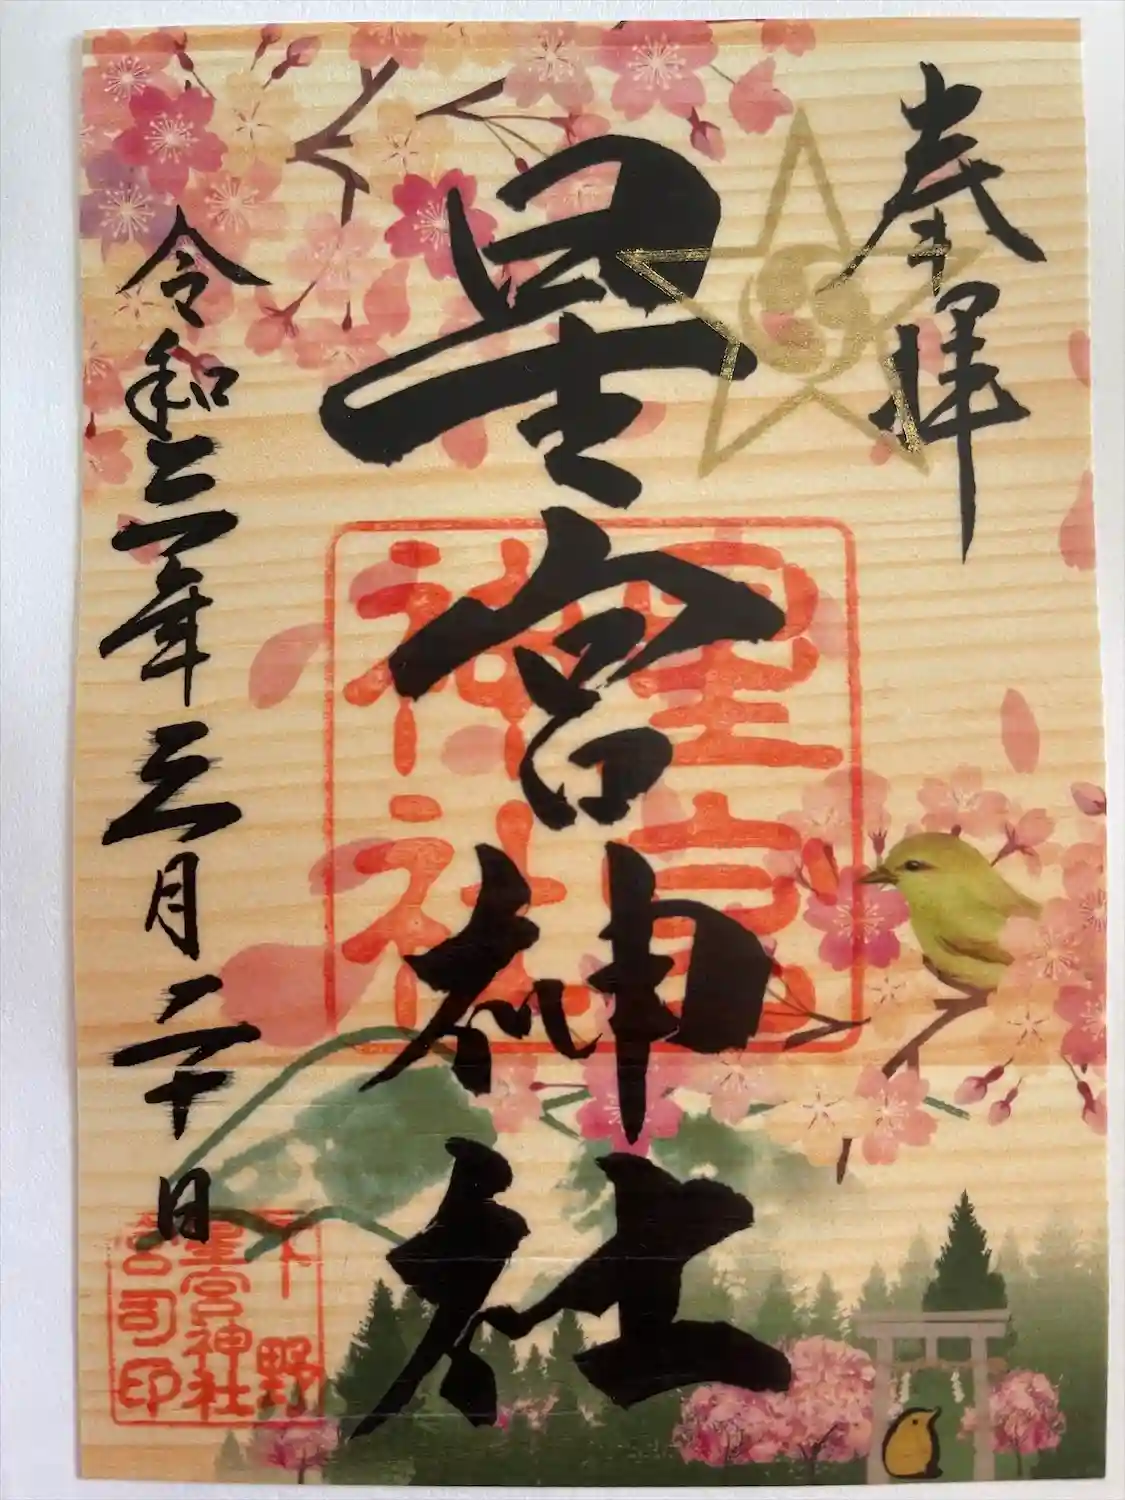 奉拝
星宮神社
令和三年三月二十日
星宮
神社
下野
星宮神社
宮司印